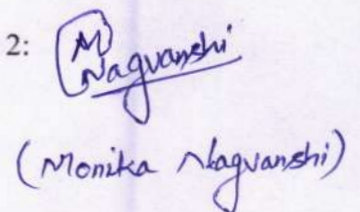 2:
M
Nagvanshi
(Monika Nagvanshi)